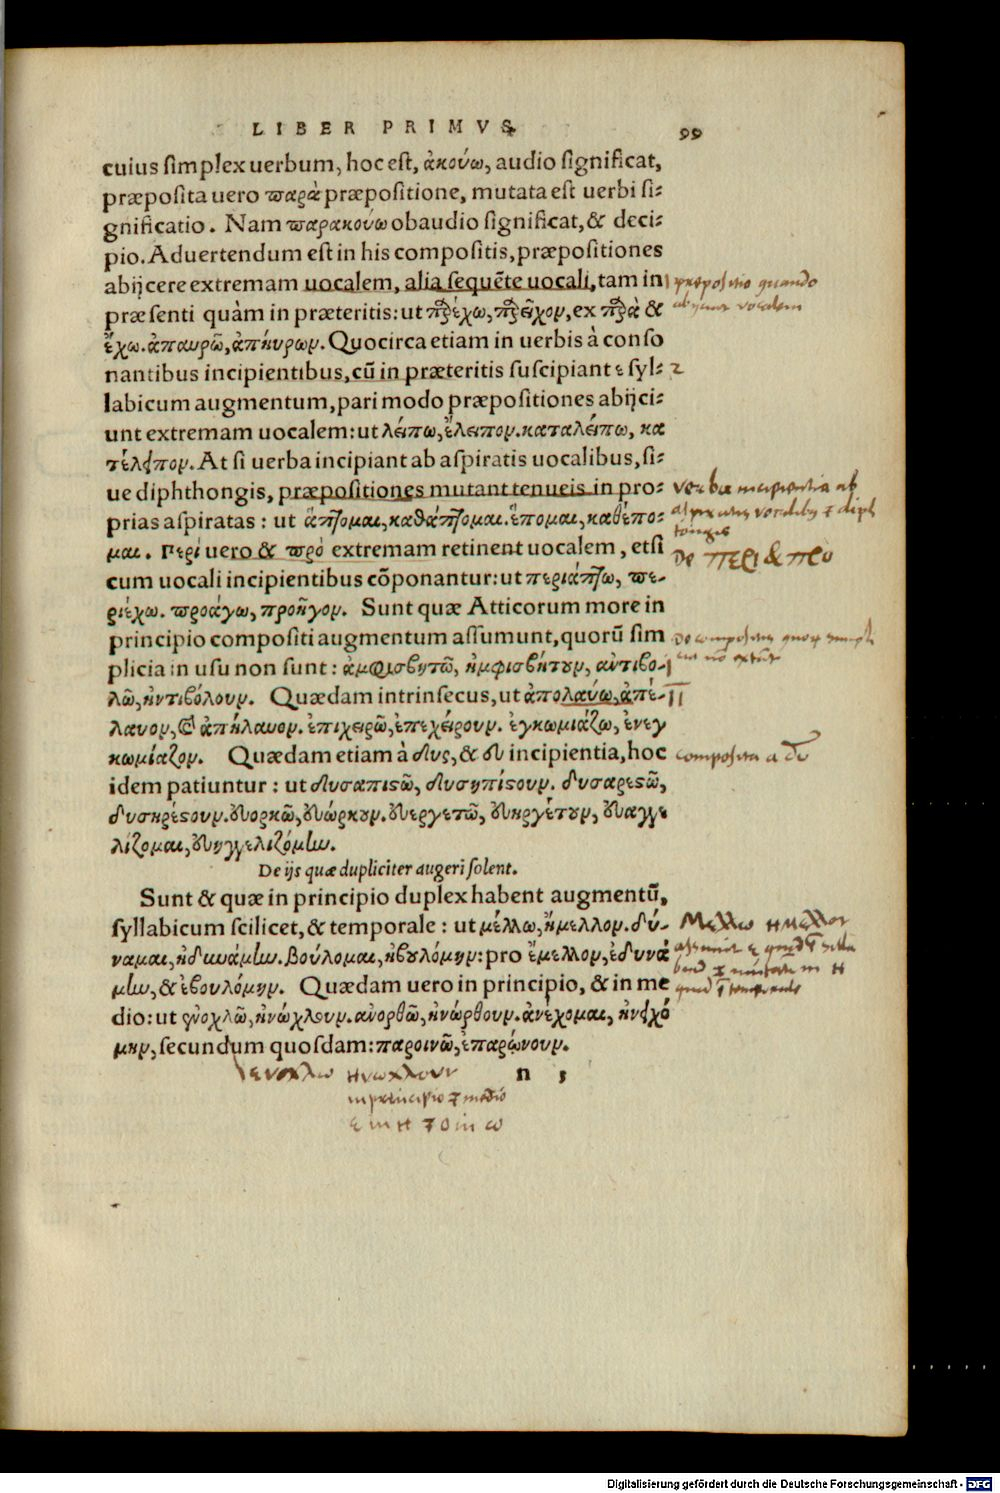 LIBER PRIMVS 99
cuius simplex uerbum, hoc est, ἀκούω, audio significat,
præposita uero παρὰ præpositione, mutata est uerbi si-
gnificatio. Nam παρακούω obaudio significat, & deci-
pio. Aduertendum est in his compositis, præpositiones
abijcere extremam uocalem, alia sequẽte uocali, tam in
præsenti quàm in præteritis: ut παρέχω, παρεῖχον, ex παρὰ &
ἔχω. ἀπαυρῶ, ἀπηύρων. Quocirca etiam in uerbis à conso
nantibus incipientibus, cũ in præteritis suscipiant ε syl-
labicum augmentum, pari modo præpositiones abijci-
unt extremam uocalem: ut λείπω, ἔλειπον. καταλείπω, κα
τέλειπον. At si uerba incipiant ab aspiratis uocalibus, si-
ue diphthongis, præpositiones mutant tenueis in pro-
prias aspiratas: ut ἅπτομαι, καθάπτομαι. ἕπομαι, καθέπο-
μαι. Περὶ uero & πρὸ extremam retinent uocalem, etsi
cum uocali incipientibus cõponantur: ut περιάπτω, πε-
ριέχω. προάγω, προῆγον. Sunt quæ Atticorum more in
principio compositi augmentum assumunt, quorũ sim
plicia in usu non sunt: ἀμφισβητῶ, ἠμφισβήτουν, ἀντιβο-
λῶ, ἠντιβόλουν. Quædam intrinsecus, ut ἀπολαύω, ἀπέ-
λαυον, & ἀπήλαυον. ἐπιχειρῶ, ἐπεχείρουν. ἐγκωμιάζω, ἐνεγ
κωμίαζον. Quædam etiam à δυς, & ευ incipientia, hoc
idem patiuntur: ut δυσαπιστῶ, δυσηπίστουν. δυσαρεστῶ,
δυσηρέστουν. εὐορκῶ, εὐώρκουν. εὐεργετῶ, εὐηργέτουν, εὐαγγε
λίζομαι, εὐηγγελιζόμην.
De ijs quæ dupliciter augeri solent.
Sunt & quæ in principio duplex habent augmentũ,
syllabicum scilicet, & temporale: ut μέλλω, ἤμελλον. δύ-
ναμαι, ἠδυνάμην. βούλομαι, ἠβουλόμην: pro ἔμελλον, ἐδυνά
μην, & ἐβουλόμην. Quædam uero in principio, & in me
dio: ut ἐνοχλῶ, ἠνώχλουν. ἀνορθῶ, ἠνώρθουν. ἀνέχομαι, ἠνειχό
μην, secundum quosdam: παροινῶ, ἐπαρῴνουν.
n 3
præpositio quando
abijciat vocalem
2
verba incipientia ab
aspiratis vocalibus & diph
tongis
De περι & προ
De compositis quorum simpli
cia nõ extãt
I
II
composita a
Μελλω ημελλον
ενοχλω ηνωχλουν
in principio & medio
ε in η & ο in ω
Digitalisierung gefördert durch die Deutsche Forschungsgemeinschaft - DFG